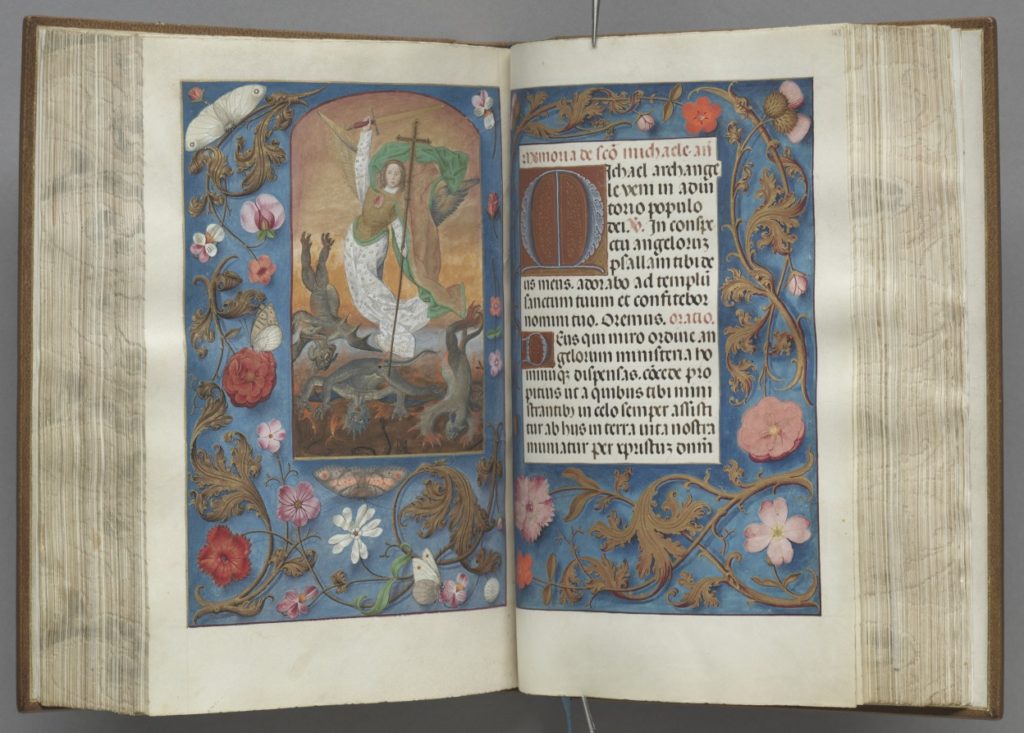 Memoria de scō michaele. an̄
Michael archange
le veni in adiu
torio populo
dei. V̄. In conspe
ctu angelorum
psallam tibi de
us meus. adorabo ad templū
sanctum tuum et confitebor
nomini tuo. Oremus. Oratio.
Deus qui miro ordine an
gelorum ministeria ho
minūqꝫ dispensas. cōcede pro
pitius ut a quibus tibi mini
strantibꝫ in celo semper assisti
tur ab hiis in terra vita nostra
muniatur per xpristuꝫ dn̄m